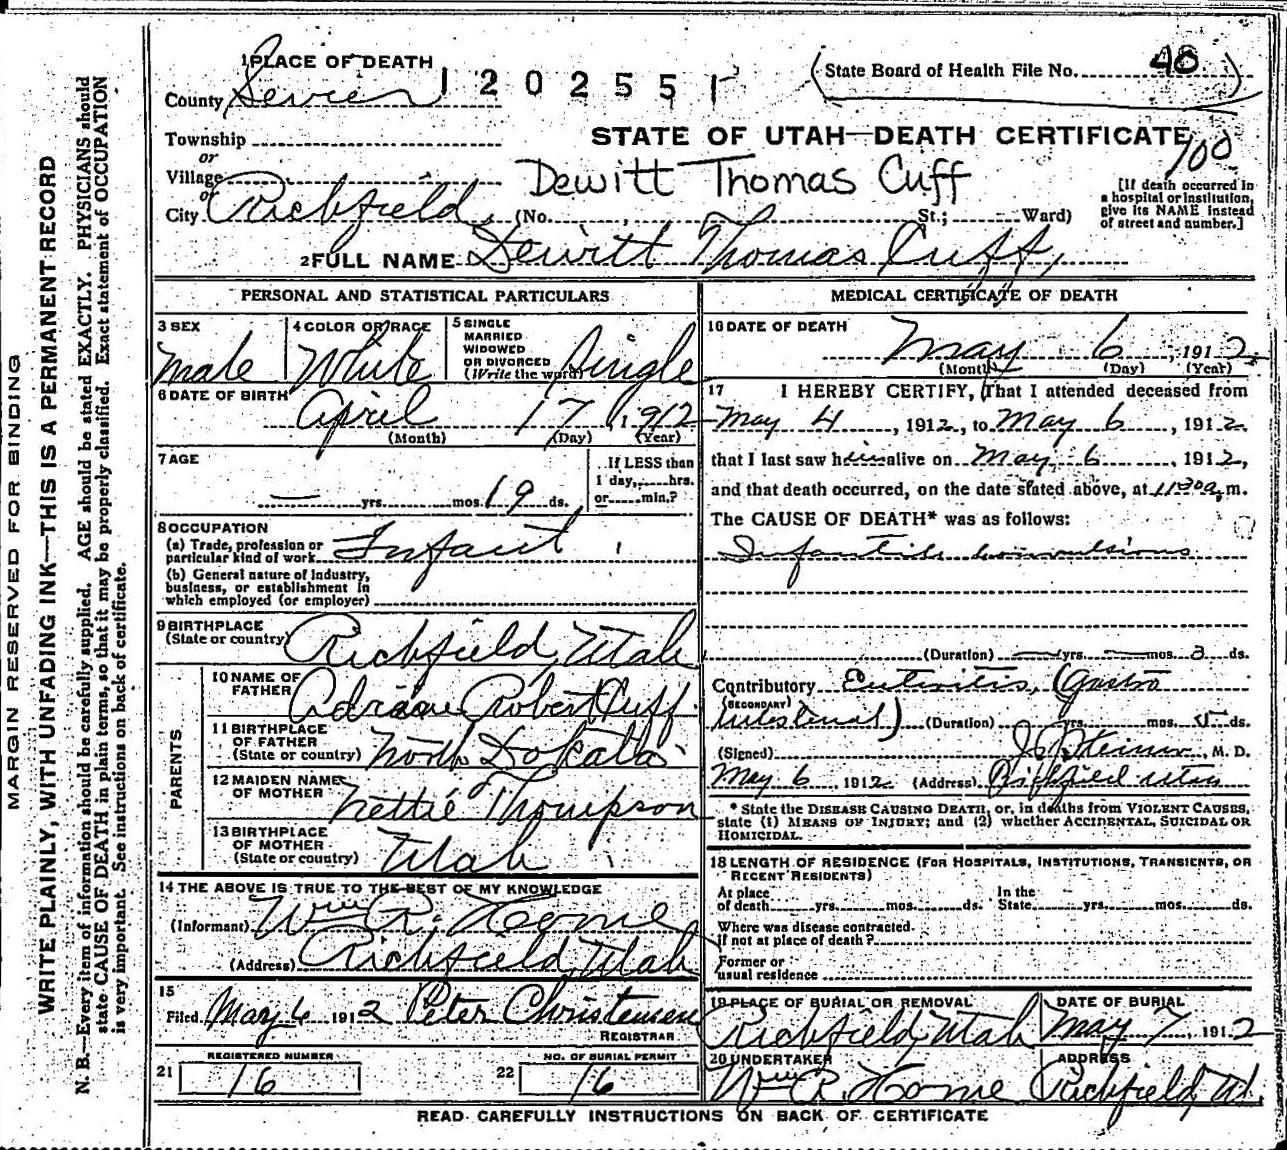 MARGIN RESERVED FOR BINDING
WRITE PLAINLY, WITH UNFADING INK—THIS IS A PERMANENT RECORD
N. B.—Every item of information should be carefully supplied. AGE should be stated EXACTLY. PHYSICIANS should
state CAUSE OF DEATH in plain terms, so that it may be properly classified. Exact statement of OCCUPATION
is very important. See instructions on back of certificate.
1 PLACE OF DEATH
County Sevier
1202551
(State Board of Health File No. 48)
Township
or
Village
or
City Richfield
STATE OF UTAH—DEATH CERTIFICATE
100
Dewitt Thomas Cuff
(No. , St.; Ward)
[If death occurred in
a hospital or institution,
give its NAME instead
of street and number.]
2 FULL NAME Dewitt Thomas Cuff,
PERSONAL AND STATISTICAL PARTICULARS
3 SEX
male
4 COLOR OR RACE
White
5 SINGLE
MARRIED
WIDOWED
OR DIVORCED
(Write the word)
Single
6 DATE OF BIRTH
April 17, 1912
(Month) (Day) (Year)
7 AGE
— yrs. mos. 19 ds.
If LESS than
1 day, hrs.
or min.?
8 OCCUPATION
(a) Trade, profession or
particular kind of work Infant
(b) General nature of industry,
business, or establishment in
which employed (or employer)
9 BIRTHPLACE
(State or country) Richfield, Utah
PARENTS
10 NAME OF
FATHER
Robert Cuff
11 BIRTHPLACE
OF FATHER
(State or country) North Dokata
12 MAIDEN NAME
OF MOTHER
Nettie Thompson
13 BIRTHPLACE
OF MOTHER
(State or country) Utah
14 THE ABOVE IS TRUE TO THE BEST OF MY KNOWLEDGE
(Informant) Wm R. Horne
(Address) Richfield, Utah
15
Filed May 6 1912 Peter Christensen
REGISTRAR
REGISTERED NUMBER
21 16
NO. OF BURIAL PERMIT
22 16
MEDICAL CERTIFICATE OF DEATH
16 DATE OF DEATH
May 6, 1912
(Month) (Day) (Year)
17 I HEREBY CERTIFY, That I attended deceased from
May 4, 1912, to May 6, 1912
that I last saw him alive on May 6, 1912,
and that death occurred, on the date stated above, at 11 30 a.m.
The CAUSE OF DEATH* was as follows:
Infantile convulsions
(Duration) — yrs. — mos. 3 ds.
Contributory Enteritis, (Gastro
(SECONDARY)
intestinal) (Duration) yrs. mos. 5 ds.
(Signed) M. D.
May 6, 1912 (Address) Richfield Utah
* State the DISEASE CAUSING DEATH, or, in deaths from VIOLENT CAUSES,
state (1) MEANS OF INJURY; and (2) whether ACCIDENTAL, SUICIDAL OR
HOMICIDAL.
18 LENGTH OF RESIDENCE (FOR HOSPITALS, INSTITUTIONS, TRANSIENTS, OR
RECENT RESIDENTS)
At place
of death yrs. mos. ds.
In the
State yrs. mos. ds.
Where was disease contracted
if not at place of death?
Former or
usual residence
19 PLACE OF BURIAL OR REMOVAL
Richfield, Utah
DATE OF BURIAL
May 7, 1912
20 UNDERTAKER
Wm R. Horne
ADDRESS
Richfield, Ut.
READ CAREFULLY INSTRUCTIONS ON BACK OF CERTIFICATE